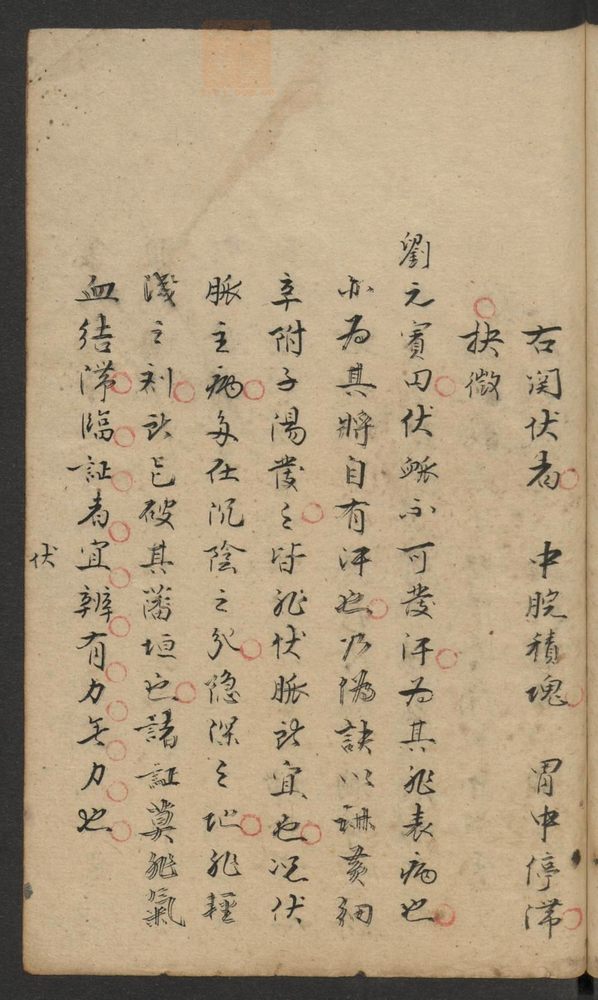 右関伏者 中脘積塊 胃中停滞
抉微
劉元賓曰伏脈不可發汗為其非表病也
亦為其將自有汗也乃偽訣以麻黄細
辛附子湯發之皆非伏脈所宜也况伏
脈主病多在沉陰之分隐深之地非輕
淺之剤所已破其藩垣也諸証莫非氣
血结滞臨証者宜辨有力无力也
伏